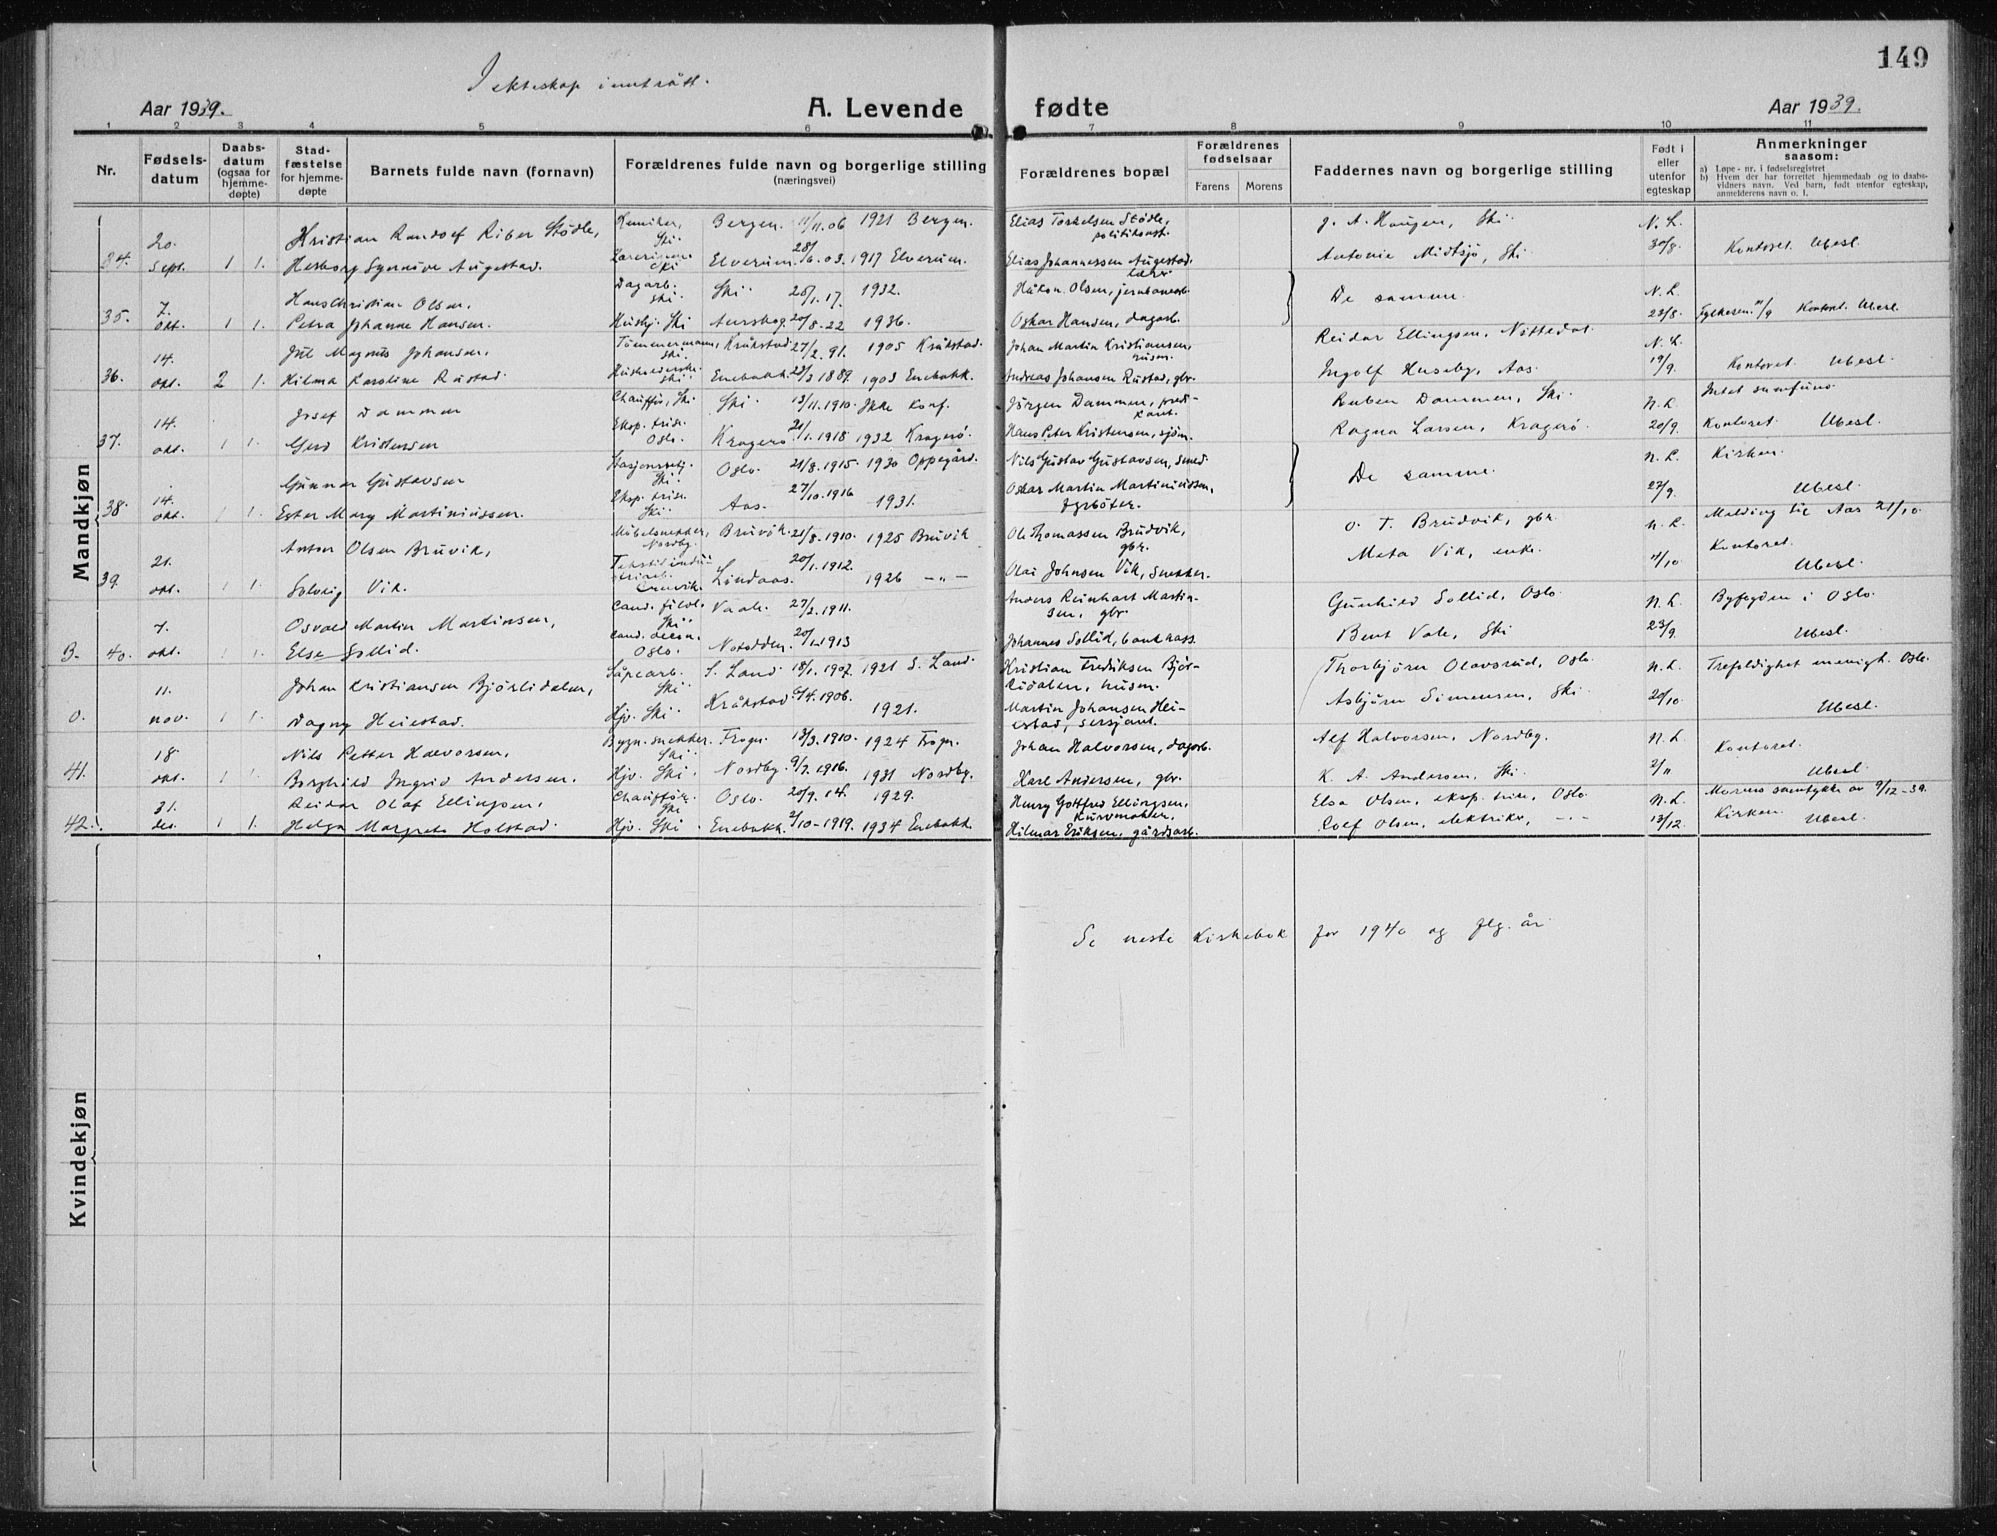 149
I ekteskap inntrått.
Aar 1939. A. Levende fødte Aar 1939.
1 2 3 4 5 6 7 8 9 10 11
Nr. Fødselsdatum Daabsdatum (ogsaa for hjemmedøpte) Stadfæstelse for hjemmedøpte Barnets fulde navn (fornavn) Forældrenes fulde navn og borgerlige stilling (næringsvei) Forældrenes bopæl Forældrenes fødselsaar Farens Morens Faddernes navn og borgerlige stilling Født i eller utenfor egteskap Anmerkninger saasom:
a) Løpe-nr. i fødselsregistret
b) Hvem der har forrettet hjemmedaab og to daabsvidners navn. Ved barn, født utenfor egteskap, anmelderens navn o. l.
Mandkjøn
20. Kristian Randolf Riber Stödle, Kemiker, Ski. Bergen. 11/11.06 1921 Bergen. Elias Torkelsen Stödle, politikonst. J. A. Haugen, Ski. N. L.
34. Sept. 1 1. Herborg Synnöve Augestad. Lærerinne Ski Elverum. 28/6.03. 1917 Elverum. Elias Johannessen Augestad, lærer Antonie Midtsjö, Ski 30/8 Kontoret. Ubesl.
7. Hans Christian Olsen. Dagarb. Ski. Ski 28/1.17. 1932. Håkon Olsen, jernbanearb. De samme. N. L.
35. okt. 1 1. Petra Johanne Hansen. Husbj. Ski Aurskog. 20/8.22 1936. Oskar Hansen, dagarb. 23/8. Fylkesm. 11/9 Kontoret. Ubesl.
14. Jul Magnus Johansen, Tömmermann, Ski. Kråkstad. 27/2.91. 1905 Kråkstad. Johan Martin Kristiansen, husm. Reidar Ellingsen, Nittedal N. L.
36. okt. 2 1. Hilma Karoline Rustad. Husholderske Ski Enebakk. 23/3 1889. 1903 Enebakk. Andreas Johansen Rustad, gbr. Ingolf Huseby, Aas. 19/9. Kontoret Ubesl.
14. Josef Dammen Chaufför, Ski Ski. 13/11.1910. Ikke konf. Jørgen Dammen, predikant. Ruben Dammen, Ski. N. L. Intet samfund
37. okt. 1 1. Gerd Kristensen Eksp. trise. Oslo. Kragerö 21/1.1918 1932 Kragerö. Hans Peter Kristensen, sjöm. Ragna Larsen, Kragerö. 20/9. Kontoret. Ubesl.
14. Gunnar Gustavsen Stasjonsbetj. Ski. Oslo. 21/8.1915. 1930 Oppegård. Nils Gustav Gustavsen, smed. De samme. N. L. Kirken.
38. okt. 1 1. Ester Mary Martiniussen. Eksp. trise. Ski. Aas. 27/10.1916 1931. Oskar Martin Martiniussen, fyrböter. 27/9. Ubesl.
21. Anton Olsen Bruvik, Möbelsnekker, Nordby. Bruvik. 21/8.1910. 1925 Bruvik Ole Thomassen Brudvik, gbr. O. T. Brudvik, gbr. N. L. Melding til Aas 21/10.
39. okt. 1 1. Solveig Vik. Lindaas. 20/1.1912. 1926 -"- Olai Johnsen Vik, snekker. Meta Vik, enke. 4/10 Kontoret. Ubesl.
7. Osvald Martin Martinsen, Cand. filol. Ski. Vaale. 27/2.1911. Anders Reinhart Martinsen, gbr Gunhild Sollid, Oslo N. L. Byfogden i Oslo.
B. 40. okt. 1 1. Else Sollid. Oslo. Notodden. 20/1.1913 Johannes Sollid, bankkass. Bent Vale, Ski 23/9. Ubesl.
11. Johan Kristiansen Björlidalen, Såpearb. Ski. S. Land. 18/1.1907. 1921 S. Land. Kristian Fredriksen Björlidalen, husm. Thorbjörn Olavsrud, Oslo. N. L. Trefoldighet menigh. Oslo.
O. nov. 1 1. Dagny Heiestad. Hjv. Ski. Kråkstad 9/4.1906. 1921. Martin Johansen Heiestad, sersjant. Asbjörn Simensen, Ski 20/10 Ubesl.
18 Nils Petter Halvorsen, Bygn. snekker. Ski. Frogn. 13/3.1910. 1924 Frogn. Johan Halvorsen, dagarb. Alf Halvorsen, Nordby. N. L. Kontoret.
41. okt. 1 1. Borghild Ingrid Andersen. Hjv. Ski. Nordby. 9/7.1916. 1931 Nordby. Karl Andersen, gbr. K. A. Andersen, Ski. 2/11 Ubesl.
21. Reidar Olaf Ellingsen, Chauffør. Ski Oslo. 20/9.14. 1929. Henry Gottfred Ellingsen, Kurvmaker, Elsa Olsen, eksp. trise, Oslo N. L. Morens samtykke av 9/12-39.
42. des. 1 1. Helga Margrete Holstad. Hjv. Ski. Enebakk. 2/10-1919. 1934 Enebakk. Hilmar Eriksen, gårdsarb. Rolf Olsen, elektriker, -"- 13/12. Kirken. Ubesl.
Se neste kirkebok for 1940 og flg. år
Kvindekjøn